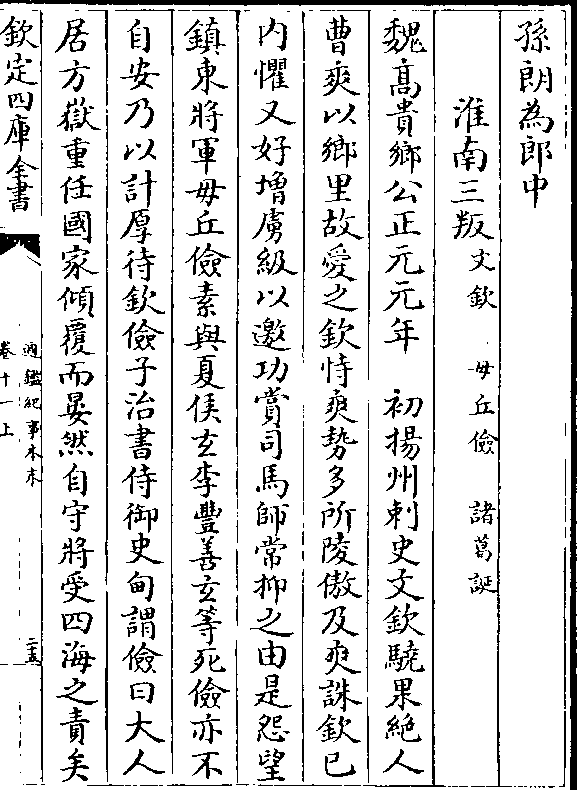 孫朗為郎中
淮南三叛文欽 毋丘儉 諸葛誕
魏髙貴鄉公正元元年 初揚州刺史文欽驍果絶人
曹爽以鄉里故愛之欽恃爽勢多所陵傲及爽誅欽已
内懼又好增虜級以邀功賞司馬師常抑之由是怨望
鎮東將軍毋丘儉素與夏侯玄李豐善玄等死儉亦不
自安乃以計厚待欽儉子治書侍御史甸謂儉曰大人
居方嶽重任國家傾覆而晏然自守將受四海之責矣
欽定四庫全書
通鑑紀事本末
卷十一上
二五